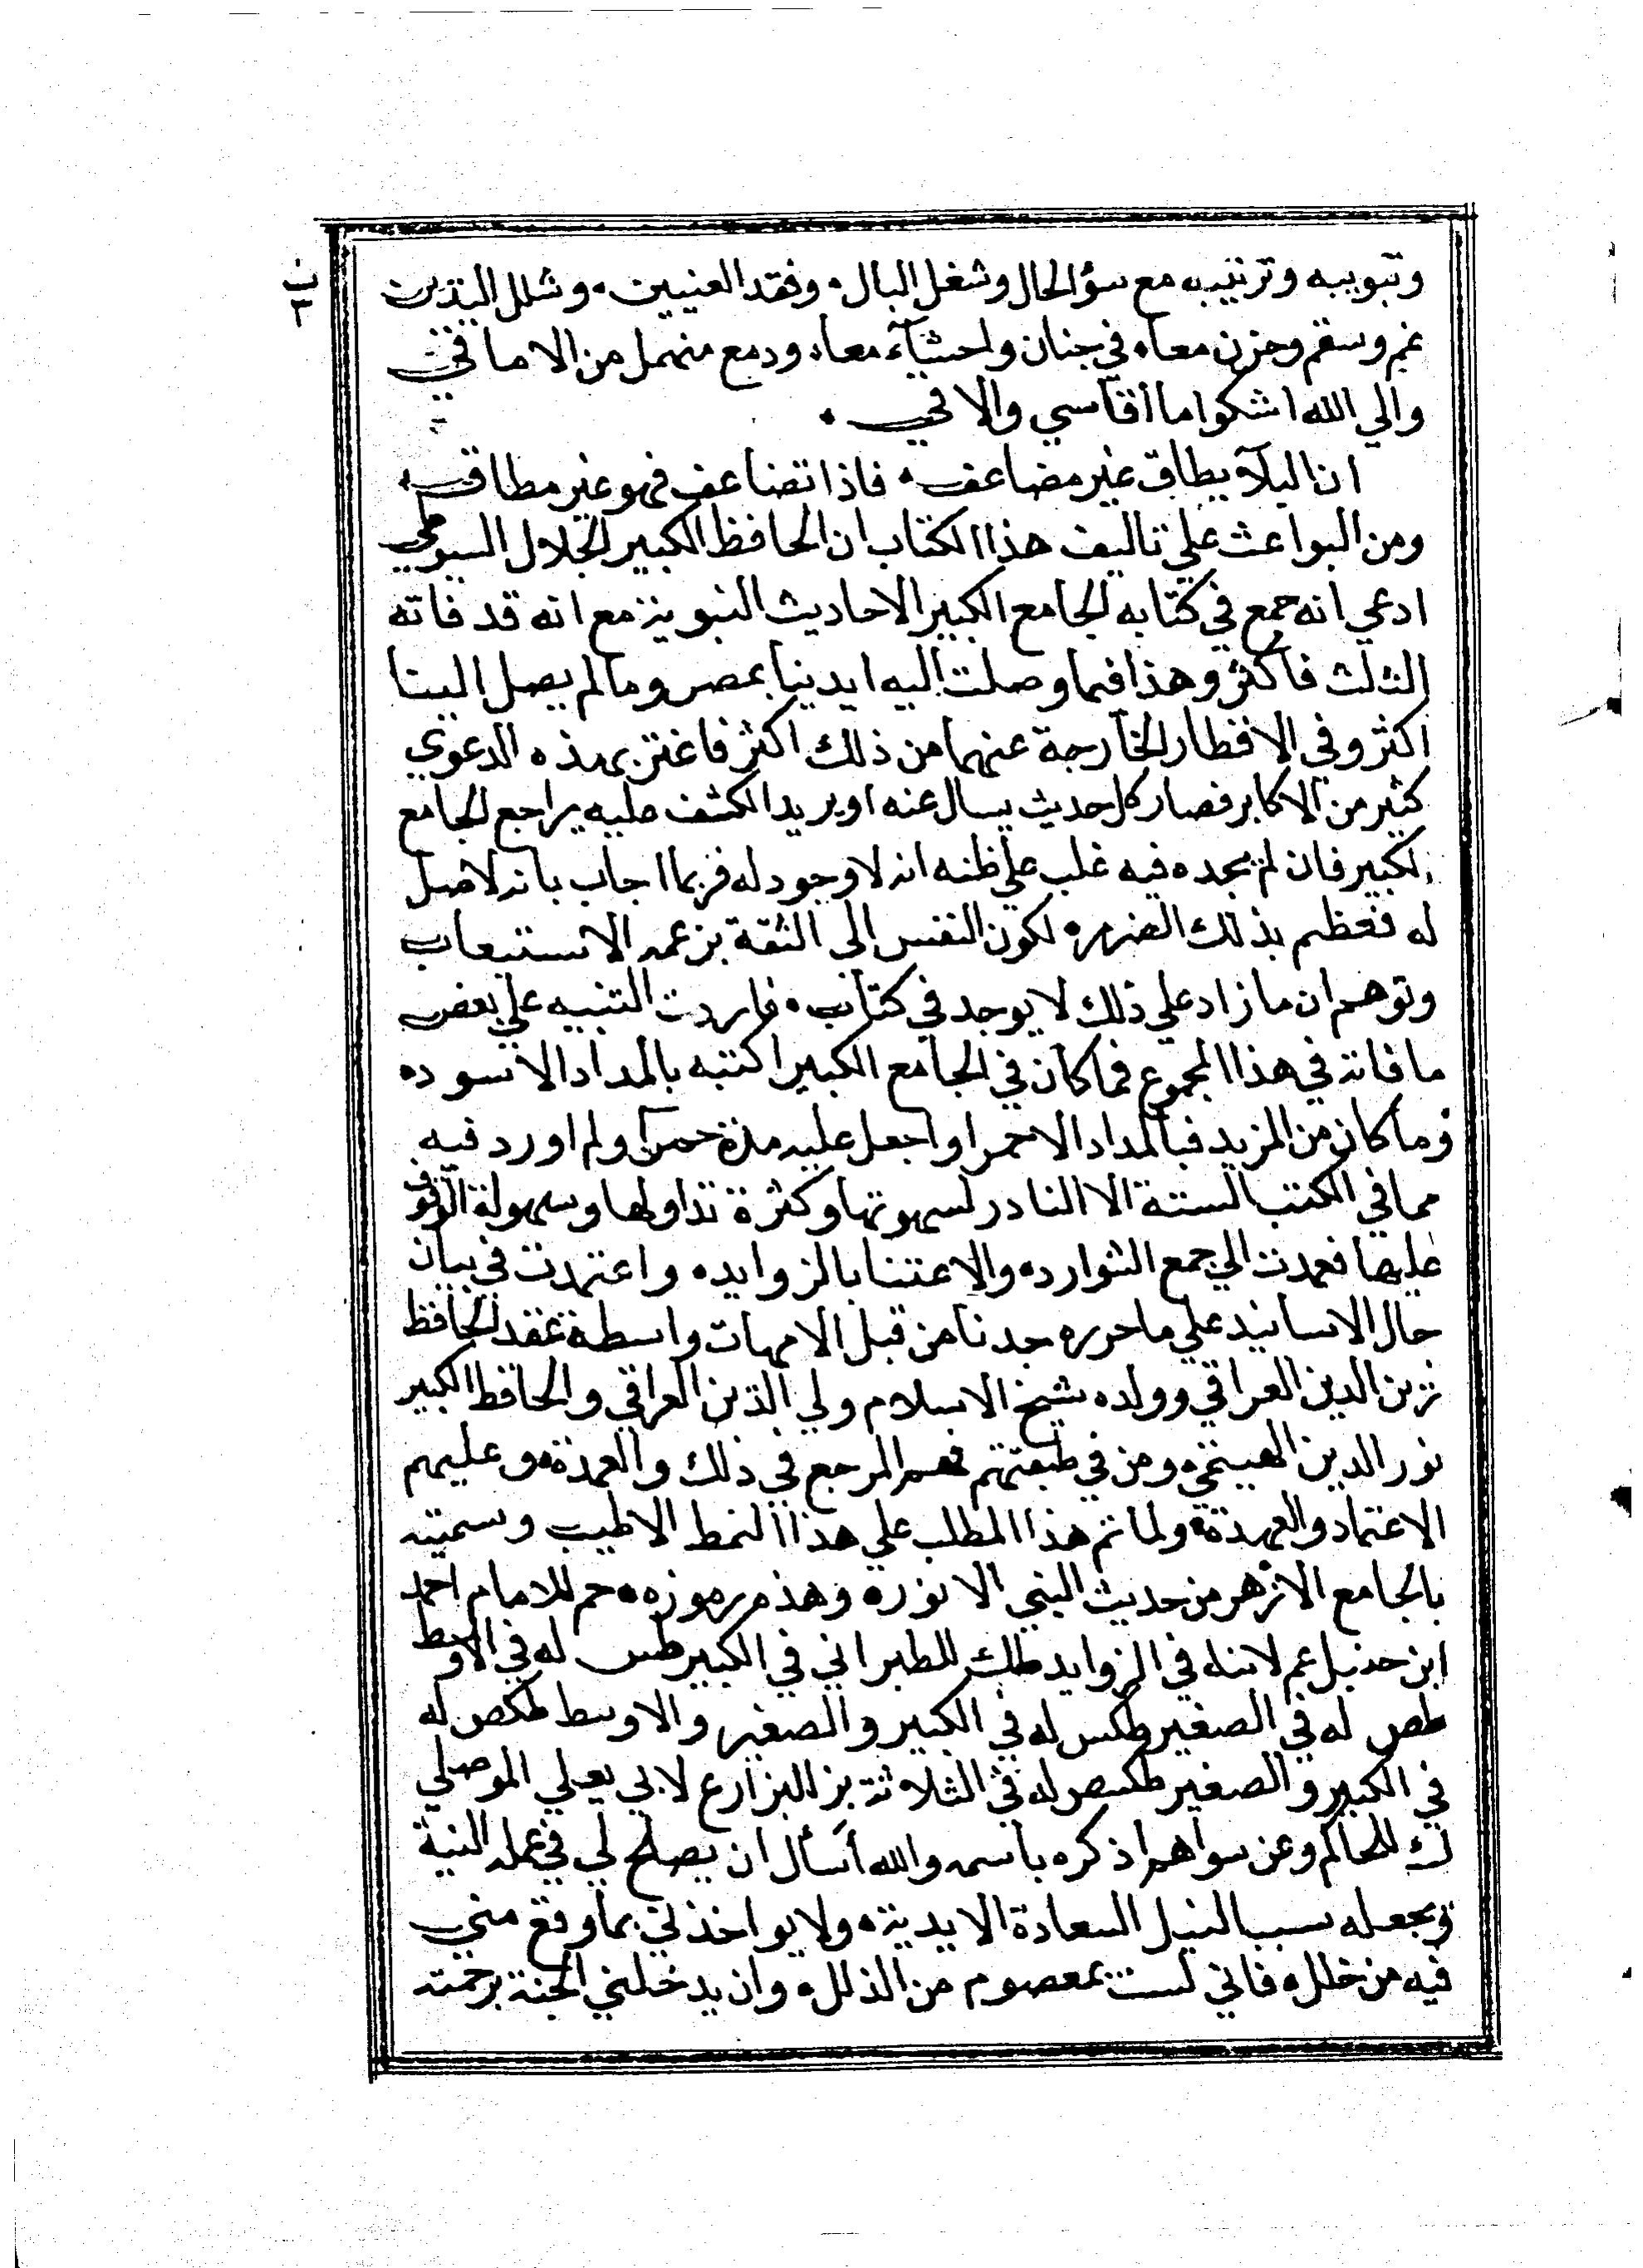 ن ٣
وتبويبه وترتيبه مع سؤ الحال وشغل البال ۰ وفقد العينين ۰ وشلل اليدين
غم وسقم وحزن معاه في جنان واحشآء معاه ودمع منهمل من الاماقي
والي الله اشكوا ما اقاسي والاقي ۰
ان البلآء يطاق غير مضاعف ۰ فاذا تضاعف فهو غير مطاق ۰
ومن البواعث علي تاليف هذا الكتاب ان الحافظ الكبير الجلال السيوطي
ادعي انه جمع في كتابه الجامع الكبير الاحاديث النبوية مع انه قد فاته
الثلث فاكثر وهذا فيما وصلت اليه ايدينا بمصر وما لم يصل الينا
اكثر وفي الاقطار الخارجة عنهما من ذلك اكثر فاغتر بهذه الدعوي
كثير من الاكابر فصار كل حديث يسال عنه او يريد الكشف عليه يراجع الجامع
الكبير فان لم يجده فيه غلب علي ظنه انه لا وجود له فربما اجاب بانه لا اصل
له فعظم بذلك الضرره لكون النفس الى الثقة بزعمه الاستيعاب
وتوهم ان ما زاد علي ذلك لا يوجد في كتاب ۰ فاردت التنبيه علي بعض
ما فاته في هذا المجموع فما كان في الجامع الكبير اكتبه بالمداد الاسوده
وما كان من المزيد فبالمداد الاحمر او اجعل عليه مدة حمرا ولم اورد فيه
مما في الكتب الستة الا النادر لسهوتها وكثرة تداولها وسهولة الوقوف
عليها فعمدت الي جمع الشوارده والاعتنا بالزوايده واعتمدت في بيان
حال الاسانيد علي ما حرره جدنا من قبل الامهات واسطة عقد الحافظ
زين الدين العراقي وولده شيخ الاسلام ولي الدين العراقي والحافظ الكبير
نور الدين الهيتمي ومن في طبقتهم فهم المرجع في ذلك والعمدة وعليهم
الاعتماد والعهدة ولما تم هذا المطلب علي هذا النمط الاطيب وسميته
بالجامع الازهر من حديث النبي الانوره وهذه رموزه ۰ حم للامام احمد
ابن حنبل عم لابنه في الزوايد طك للطبراني في الكبير طس له في الاوسط
طص له في الصغير طكس له في الكبير والصغير والاوسط طكص له
في الكبير والصغير طكسص له في الثلاثة بز البزار ع لابي يعلي الموصلي
ك للحاكم وعن سواهم اذكره باسمه والله أسأل ان يصلح لي في عمله النية
ويجعله سببا لنيل السعادة الابدية ۰ ولا يواخذني بما وقع مني
فيه من خلل ۰ فاني لست بمعصوم من الذلل ۰ وان يدخلني الجنة برحمته